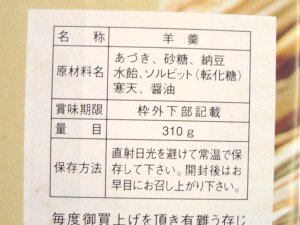 名　称　羊羹
原材料名　あづき、砂糖、納豆
水飴、ソルビット（転化糖）
寒天、醤油
賞味期限　枠外下部記載
量　目　310g
保存方法　直射日光を避けて常温で保
存して下さい。開封後はお
早目にお召し上がり下さい。
毎度御買上げを頂き有難う存じ